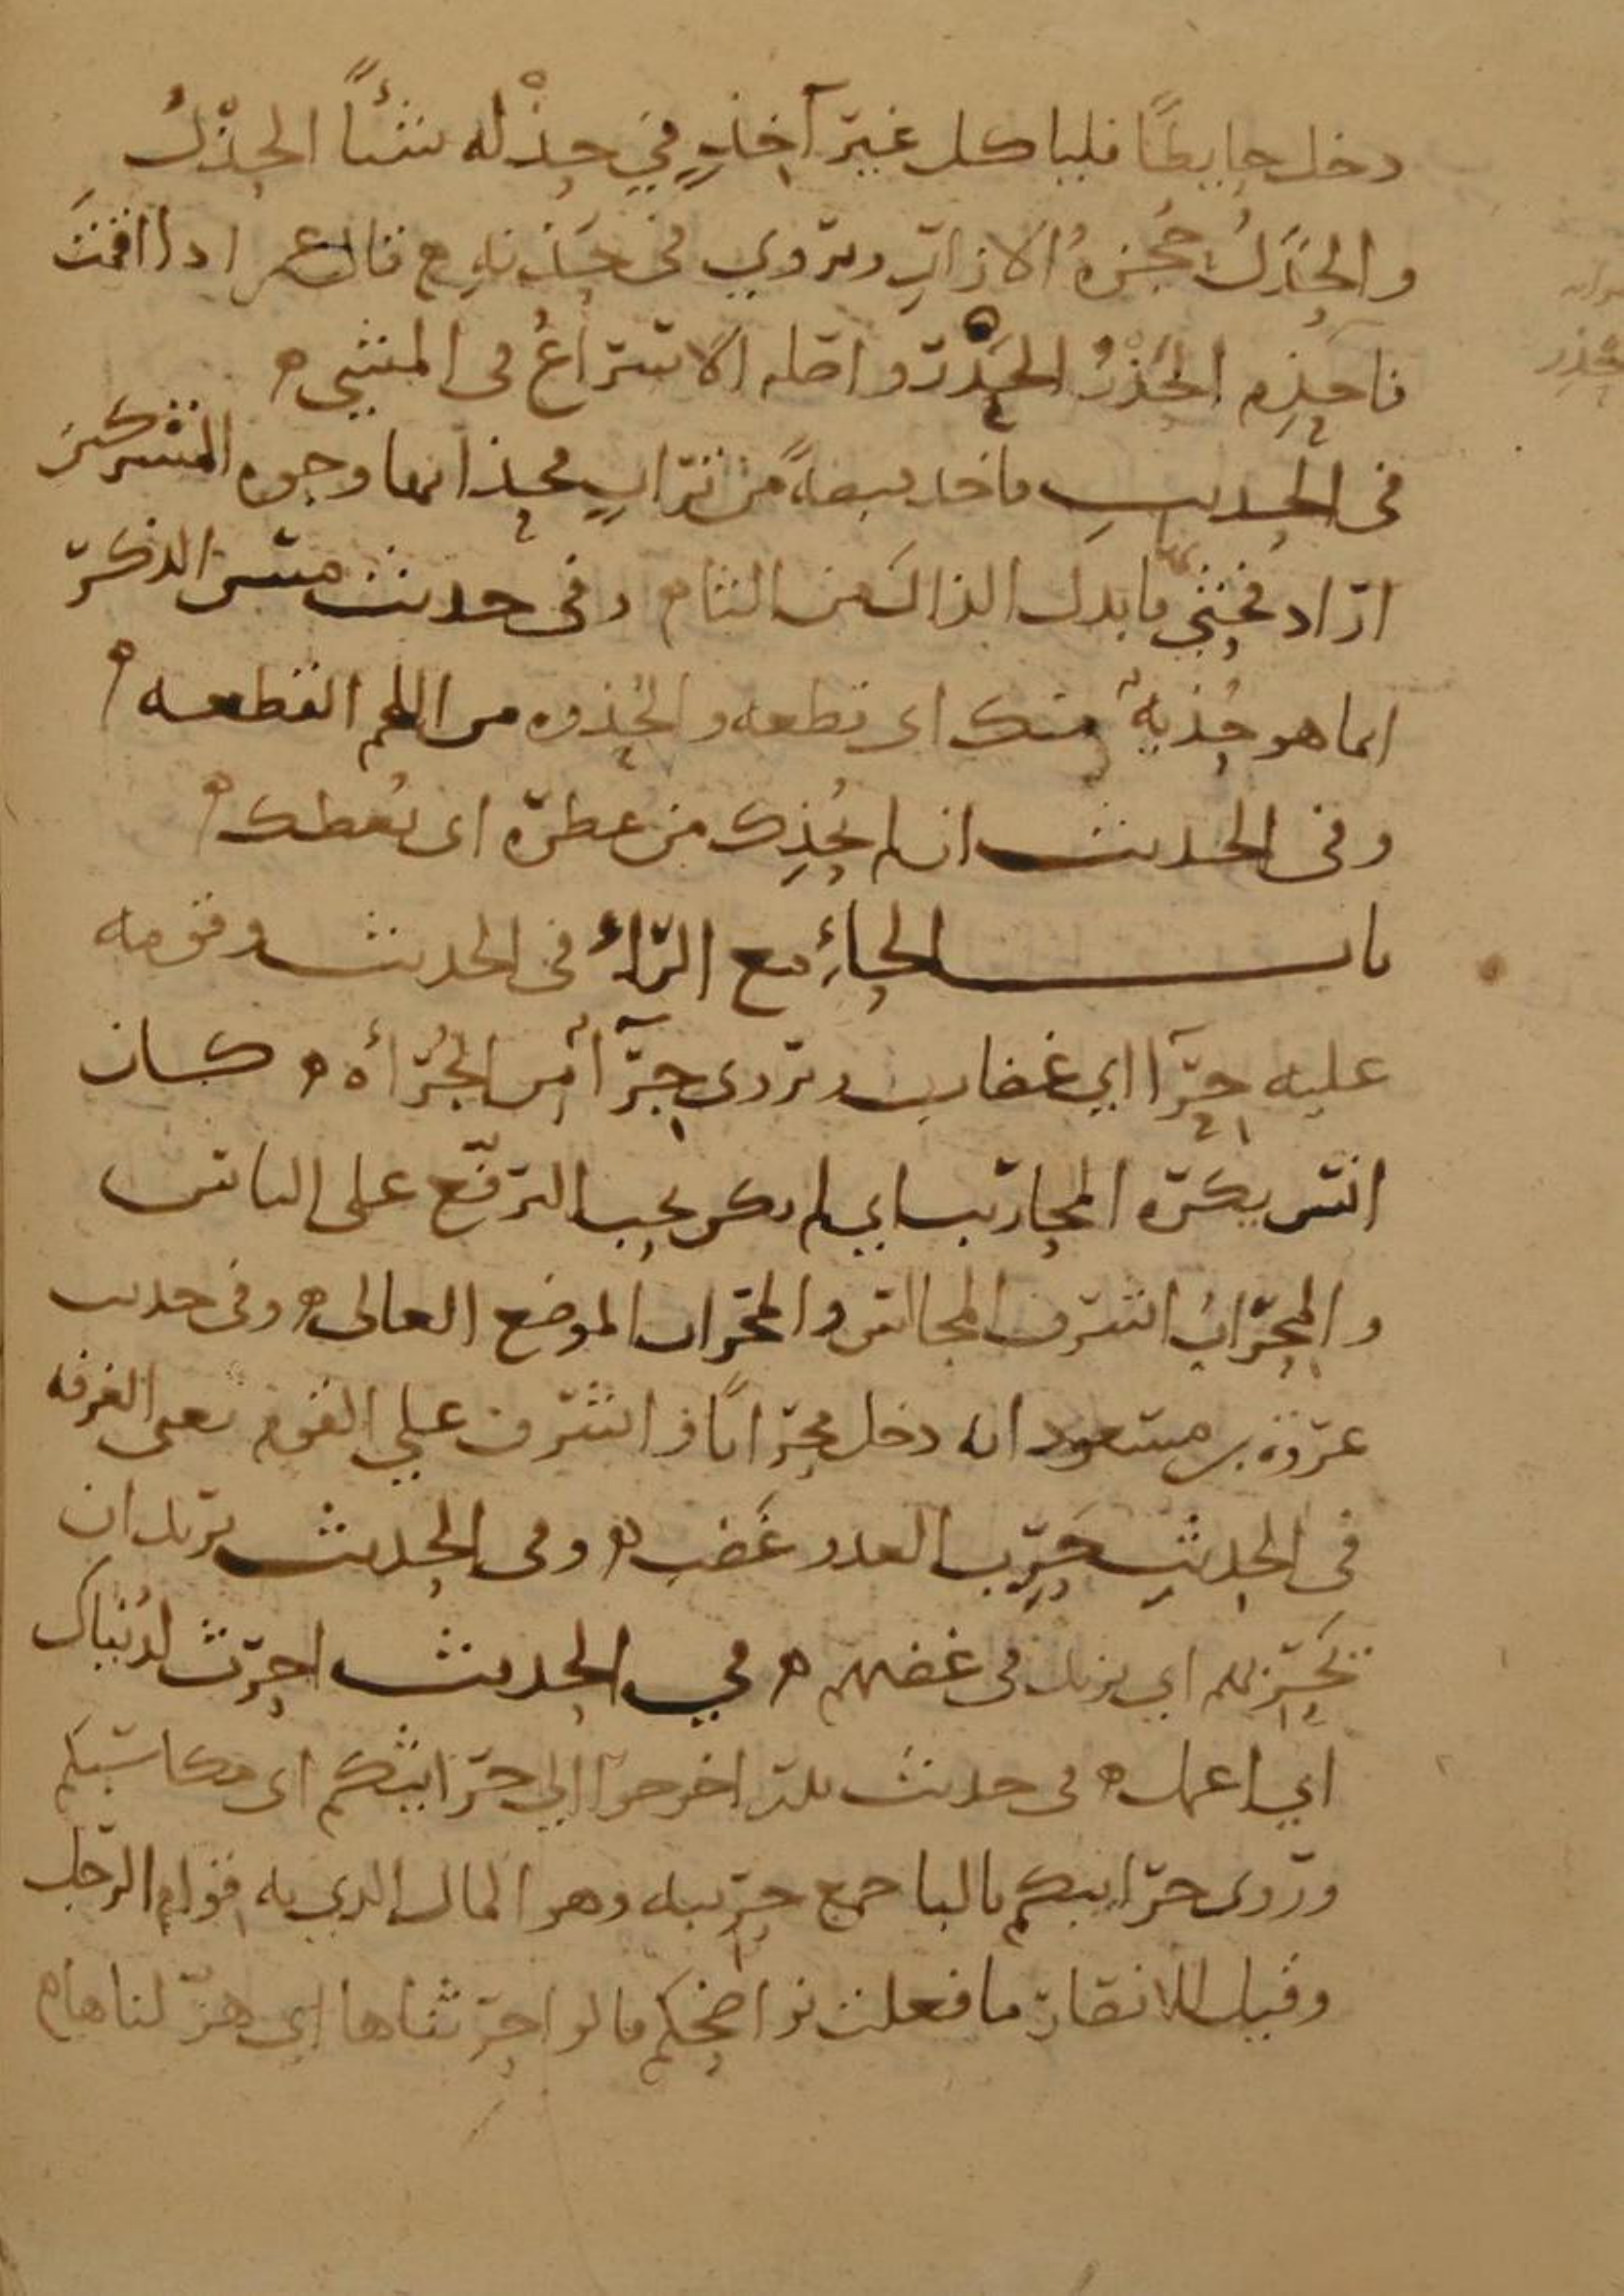 دخل حايطًا فلياكل غير آخذٍ في حذْله شيئًا الحذْلُ
والحُذَلُ حُجزهُ الازارِ ويروي في حُذنهِ ه قال عمر اذا اقمتَ
فاحذِم الحَذْمُ الحَدْر واصله الاسراعُ في المشي ه
في الحديث فاخذ قبضةً من ترابٍ فحذا بها وجوه المشركينَ
اراد فحثي فابدل الذال من الثاء وفي حديث مس الذكر
انما هو حُذيهٌ منك اي قطعه والحُذوه من اللحم القطعه ه
وفي الحديث ان لم يُحْذِك من عطره اي يُعطك ه
باب الحاءِ مع الراءِ في الحديث وقومه
عليه حِرَآءٌ اي غضاب ويروى جُرَآءٌ من الجُرأه ه كان
انس يكره المحاريب اي لم يكن يحب الترفّع على الناس
والمِحرابُ اشرف المجالس والمحراب الموضع العالي ه وفي حديث
عروة بن مسعود انه دخل محرابًا فاشرف علي القوم يعني الغرفه
في الحديثِ حَرِب العدو غَضِب ه وفي الحديث يريد ان
يُحَرِّبهم اي يزيد في غضبهم ه في الحديث احرث لدُنياك
اي اعمل ه في حديث بدر اخرجوا الي حرايثكم اي مكاسبكم
وروى حرايبكم بالبا جمع حريبه وهو المال الذي به قوام الرجل
وقيل للانصار ما فعلت نواضحكم قالوا احرثناها اي هزلناها ه